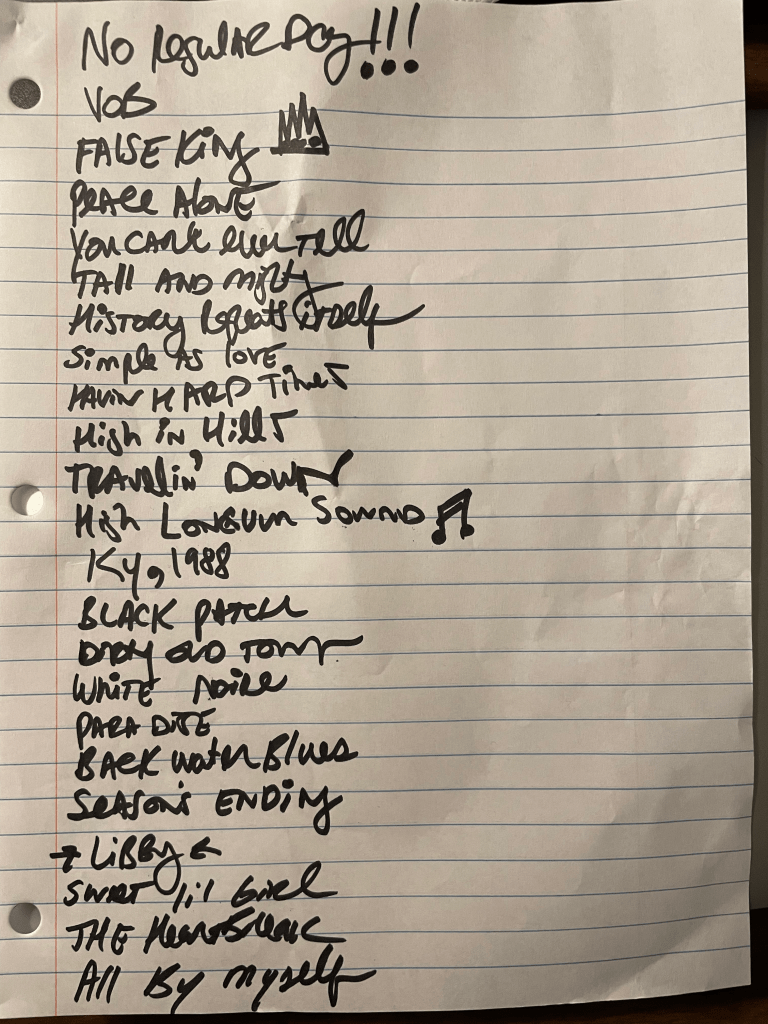 No Regular Day!!!
VOB
FALSE KiNg
PEACE ALONE
YOU CAN'T EVER TELL
TAll AND migty
HiSTORY Repeats itself
Simple AS lOVE
HAVIN HARD TiMES
High iN Hills
TRAVELiN' DOWN
High LONESOM SOUND
Ky, 1988
BLACK PATCH
OLD
WHiTE NOiSE
PARADISE
BACK water Blues
SEASON'S ENDiNg
→ LiBBy ←
SWEET lil GiRL
THE Heartbreak
All By myself